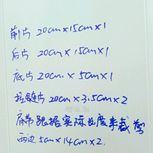 前片 20cm×15cm×1
后片 20cm×15cm×1
底片 20cm×5cm×1
拉链片 20cm×3.5cm×2
肩带 根据实际长度来裁剪
两边 5cm×14cm×2